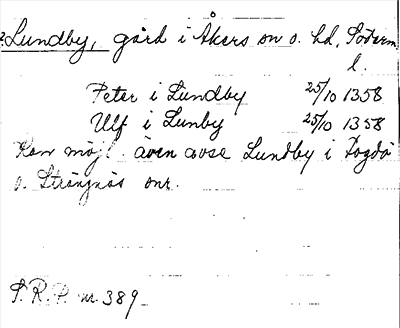 ? Lundby, gård i Åkers sn o. hd, Söderm
l.
Peter i Lundby 25/10 1358
Ulf i Lunby 25/10 1358
Kan möjl. även avse Lundby i Fogdö
o. Strängnäs snr.
S.R.P. nr 389